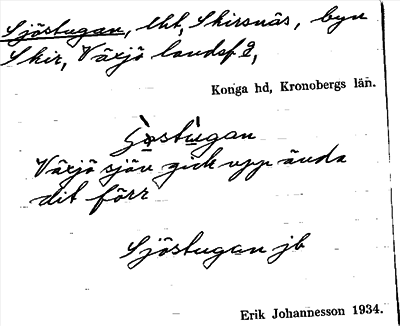 Sjöstugan, lht, Skirsnäs, byn
Skir, Växjö landsf.,
Konga hd, Kronobergs län.
Växjö sjön gick upp ända
dit förr
Sjöstugan jb
Erik Johannesson 1934.